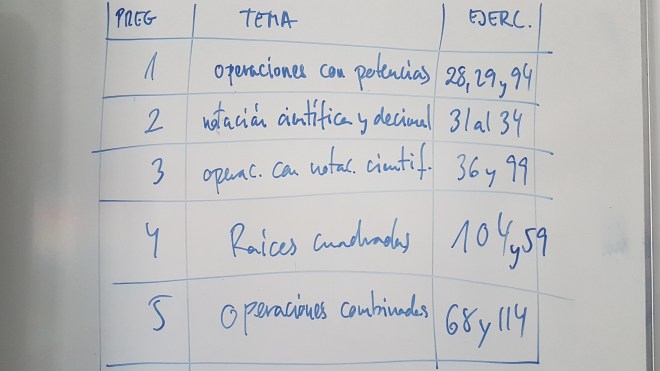 PREG TEMA EJERC.
1 operaciones con potencias 28, 29 y 94
2 notación científica y decimal 31 al 34
3 operac. con notac. científ. 36 y 99
4 Raíces cuadradas 104 y 59
5 Operaciones combinadas 68 y 114